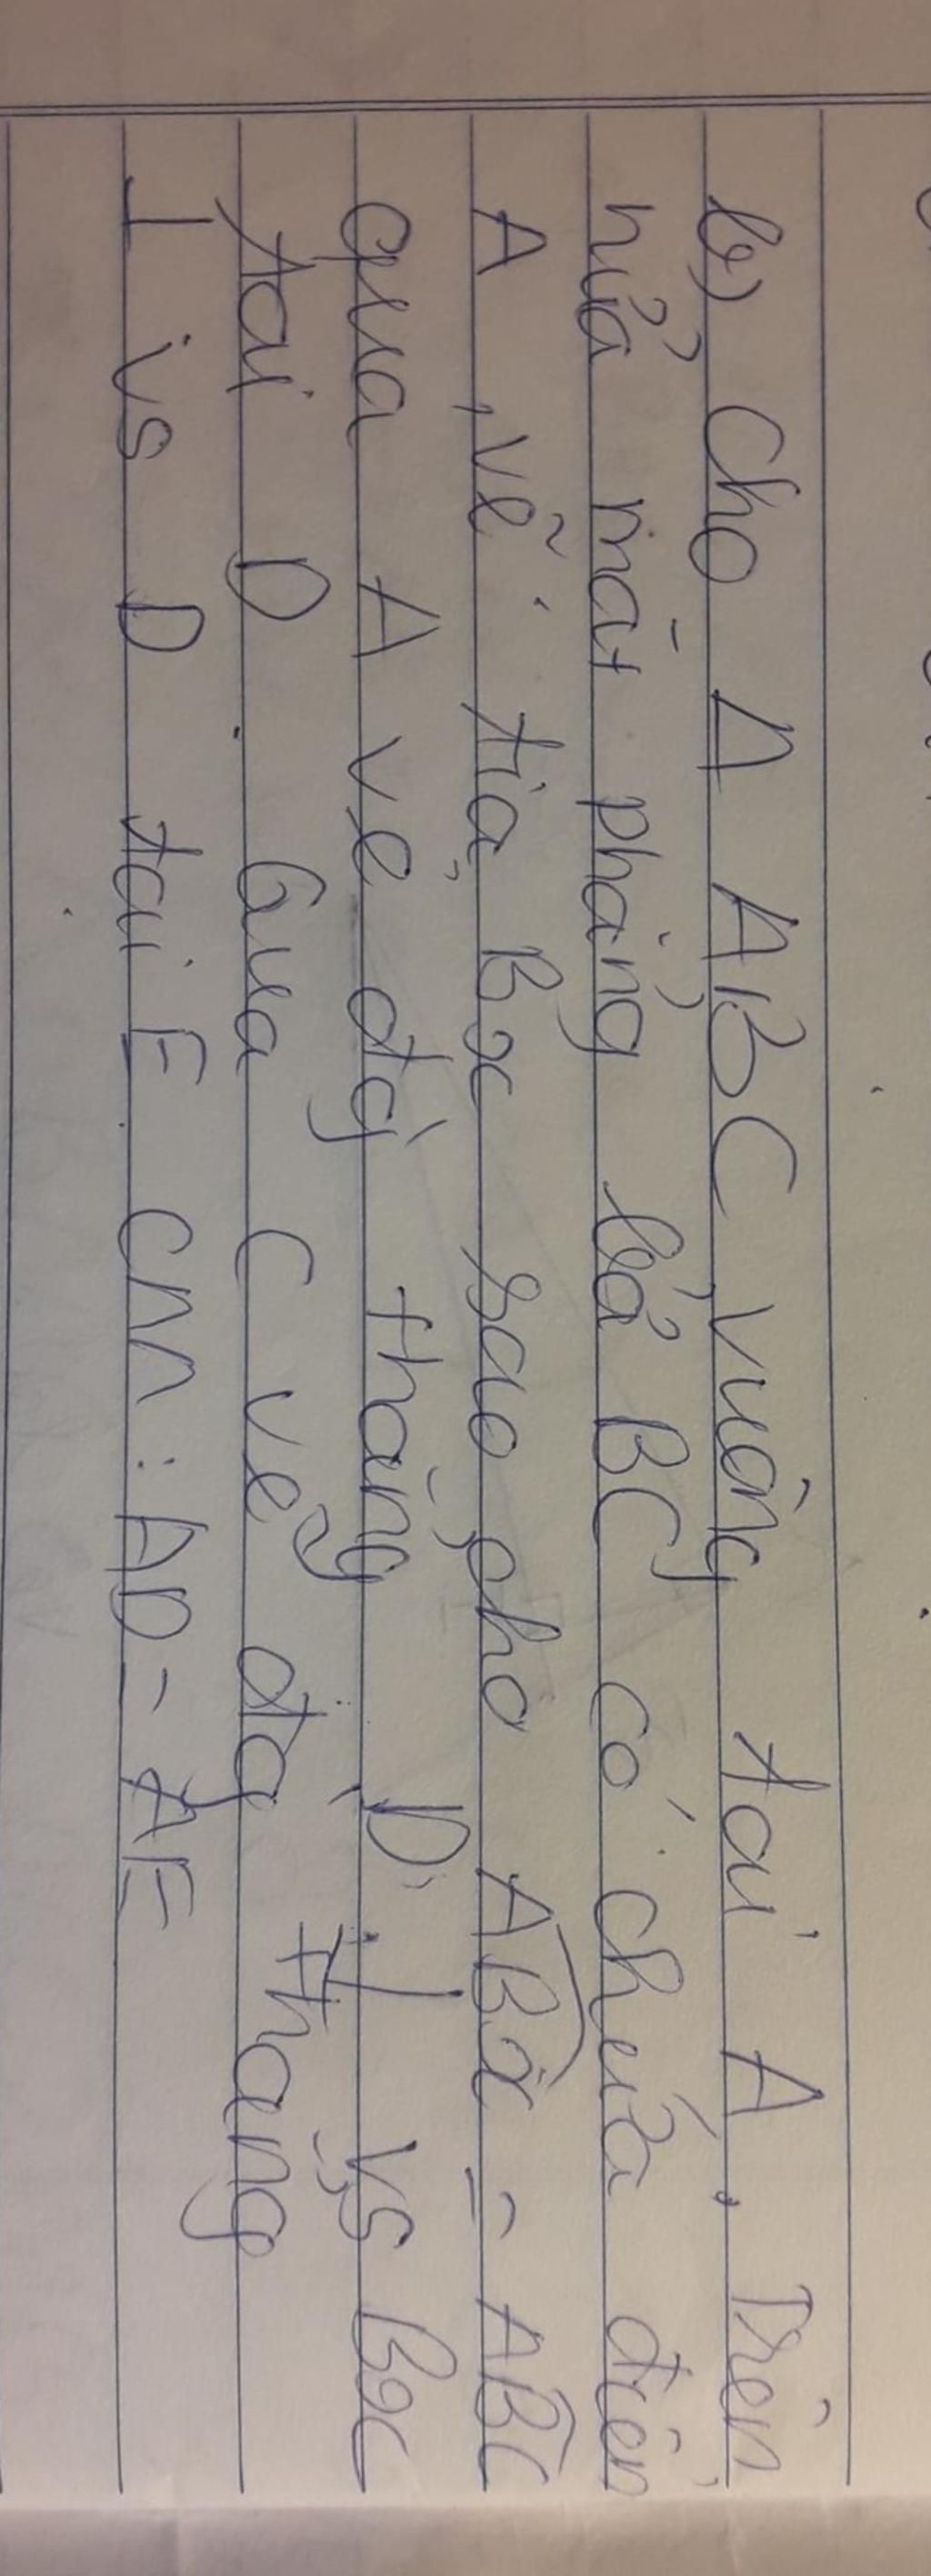 b) Cho Δ ABC vuông tại A. Trên
nửa mặt phẳng bờ BC có chứa điểm
A, vẽ tia Bx sao cho ABx = ABC
qua A vẽ đg thẳng D ⊥ vs Bx
tại D. Qua C vẽ đg thẳng
⊥ vs D tại E CM : AD = AE